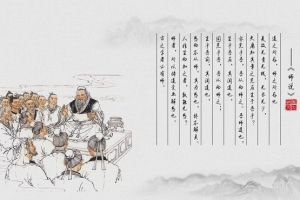 古之学者必有师。
师者，所以传道受业解惑也。
人非生而知之者，孰能无惑？
惑而不从师，其为惑也，终不解矣。
生乎吾前，其闻道也，
固先乎吾，吾从而师之；
生乎吾后，其闻道也，
亦先乎吾，吾从而师之。
夫庸知其年之先后生于吾乎？
是故无贵无贱，无长无少，
道之所存，师之所存也
——《师说》